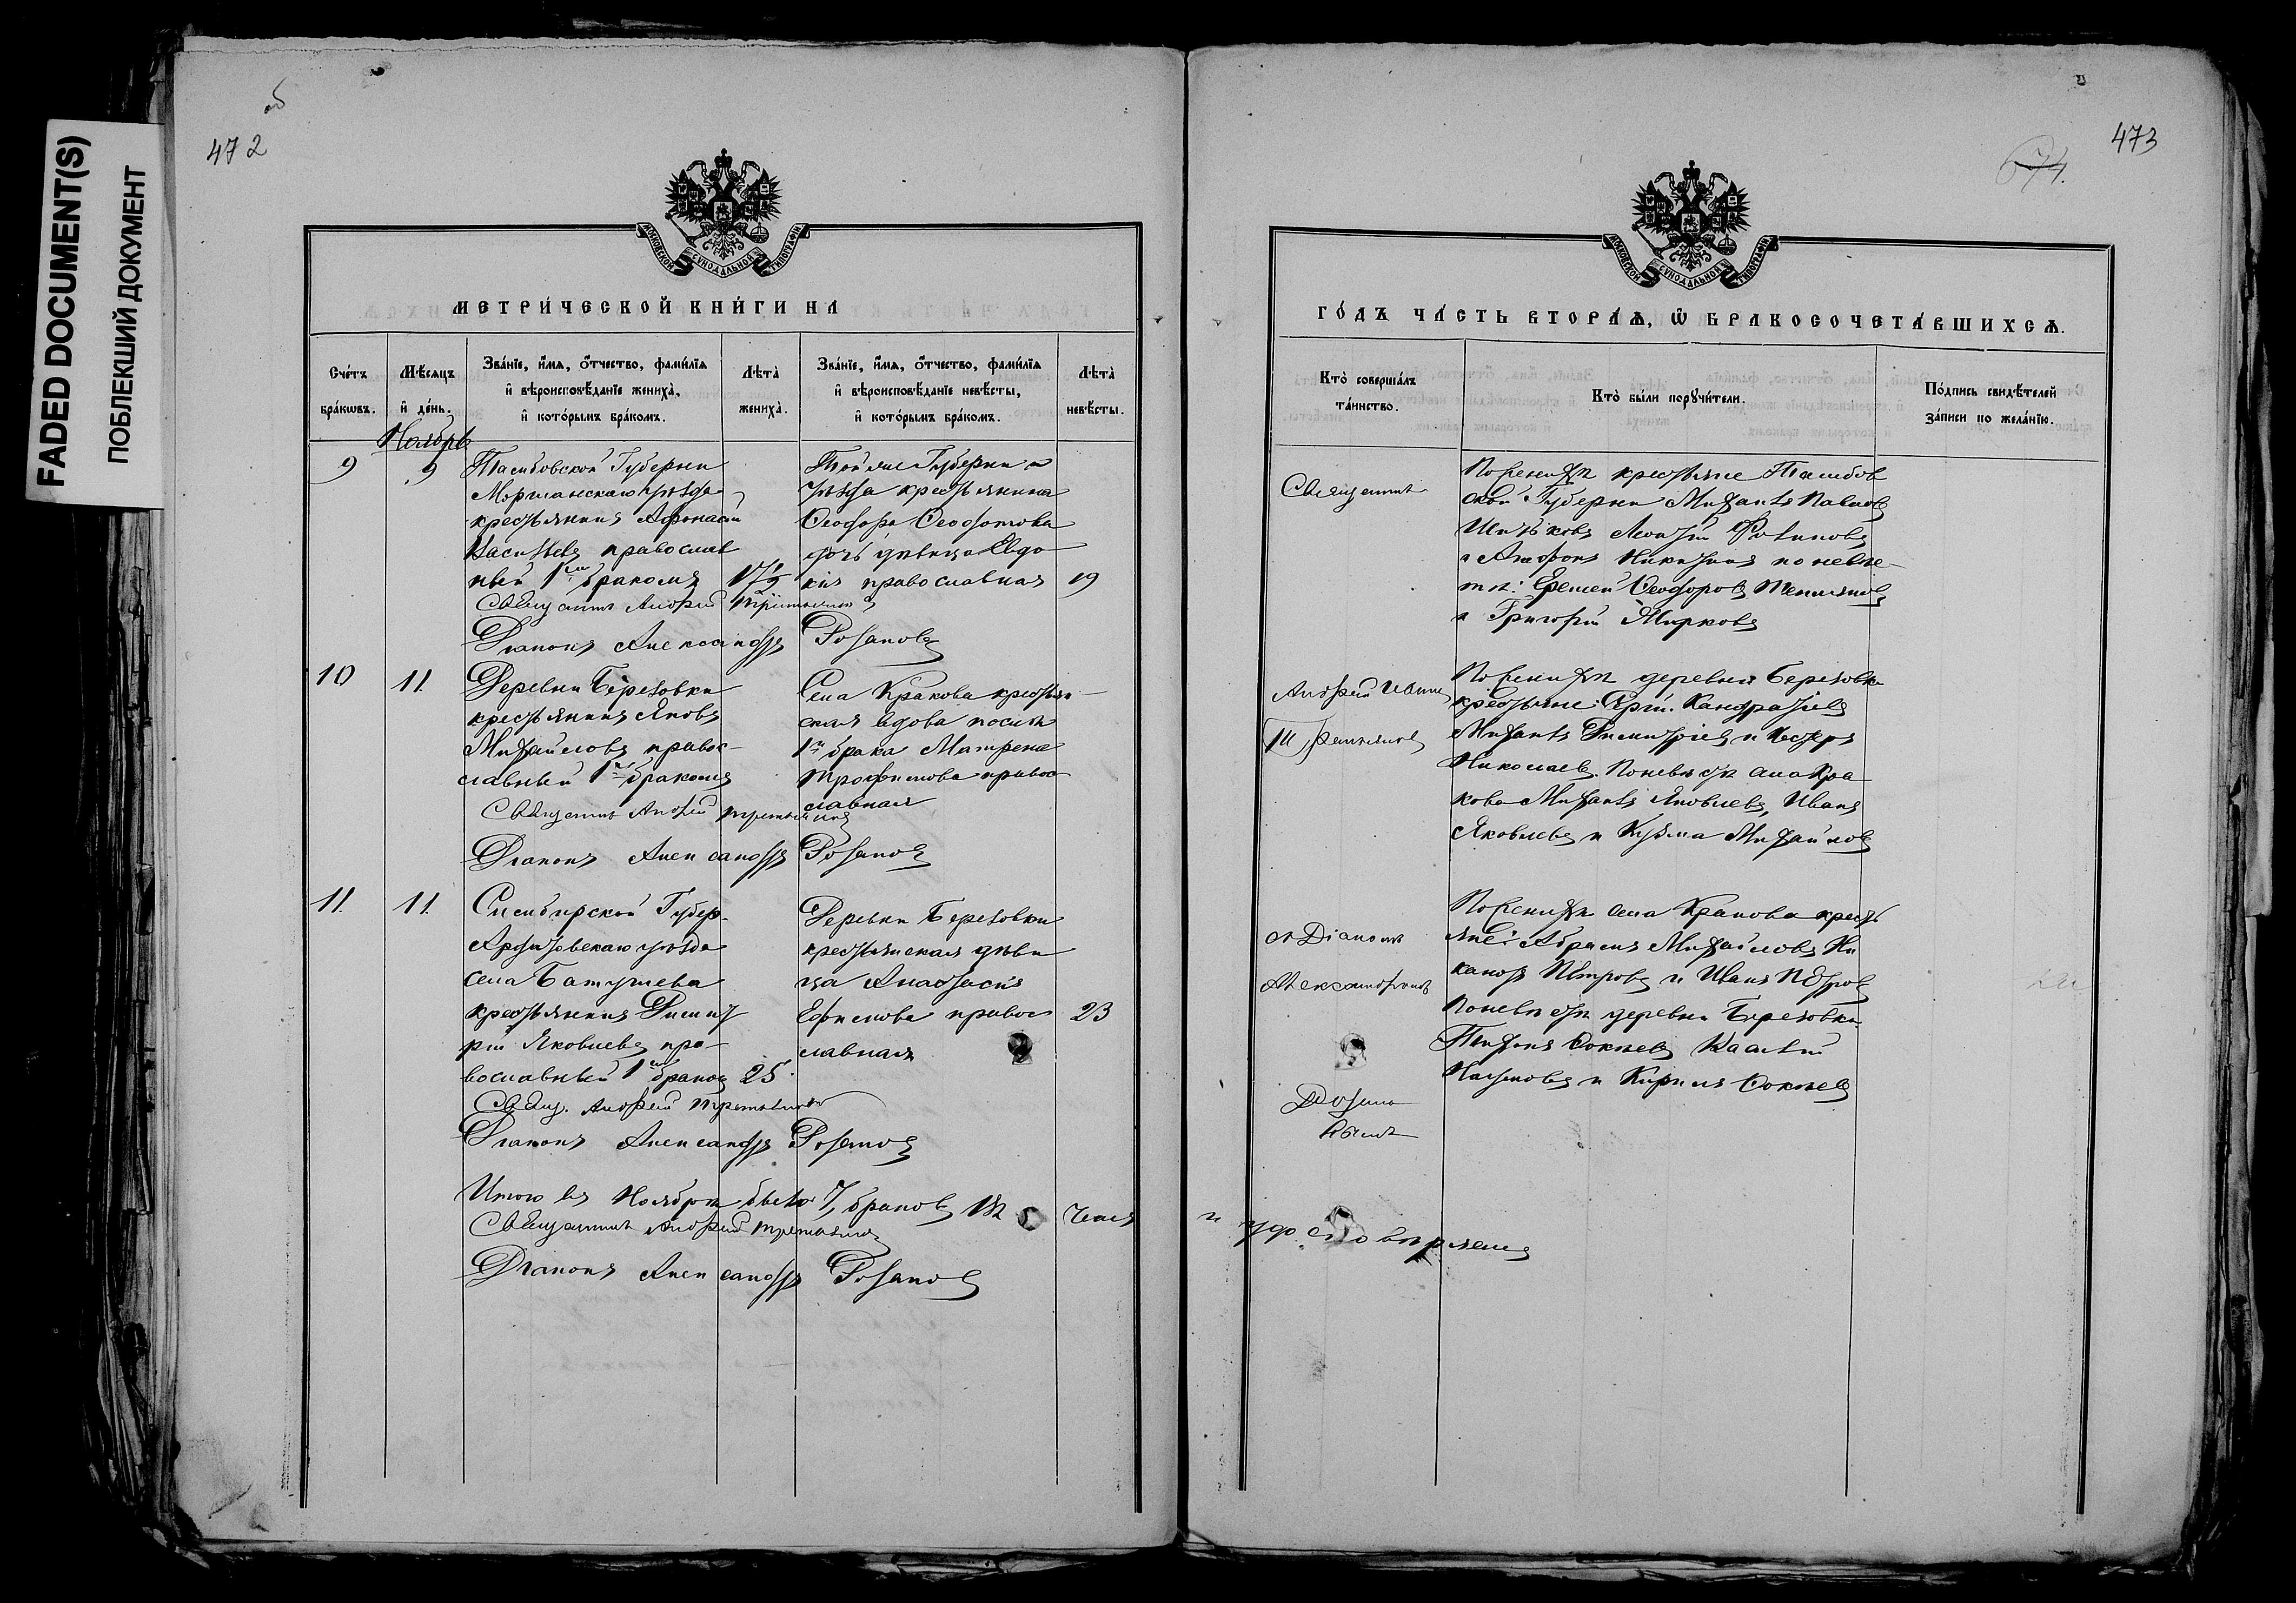 FADED DOCUMENT(S)
ПОБЛЕКШИЙ ДОКУМЕНТ
об
472
МОСКОВСКОЙ СѴНОДАЛЬНОЙ ТИПОГРАФІИ
МЕТРИ́ЧЕСКОЙ КНИ́ГИ НА
Сче́тъ бра́кѡвъ.
Мѣ́сяцъ и҆ де́нь.
Зва́ніе, и҆́мѧ, ѻ҆́тчество, фами́лїѧ и҆ вѣроисповѣ́данїе жениха̀, и҆ кото́рымъ бра́комъ.
Лѣ́та̀ жениха̀.
Зва́ніе, и҆́мѧ, ѻ҆́тчество, фами́лїѧ и҆ вѣроисповѣ́данїе невѣ́сты, и҆ кото́рымъ бра́комъ.
Лѣ́та̀ невѣ́сты.
Ноябрь
9
9
Тамбовской Губерніи
Моршанскаго уѣзда
крестьянинъ Афонасій
Васильевъ православ
ный 1мъ бракомъ
17½
Той же Губерніи и
уѣзда крестьянина
Ѳеодора Ѳеодотова
дочь дѣвица Евдо
кія православная
19
Священникъ Андрей Третьяковъ
Діаконъ Александръ Розановъ
10
11
Деревни Березовки
крестьянинъ Яковъ
Михайловъ правос-
славный 1мъ бракомъ
Села Кракова крестьян
ская вдова послѣ
1го брака Матрена
Трофимова правос
славная
Священникъ Андрей Третьяковъ
Діаконъ Александръ Розановъ
11
11
Симбирской Губер-
Ардатовскаго уѣзда
села Батушева
крестьянинъ Димит
рій Яковлевъ пра-
вославный 1мъ бракомъ
25
Деревни Березовки
крестьянская дѣви
ца Анастасія
Ефимова правос
славная
23
Свящ. Андрей Третьяковъ
Діаконъ Александръ Розановъ
Итого въ Ноябрѣ было 7 браковъ
Священникъ Андрей Третьяковъ
Діаконъ Александръ Розановъ
473
674.
МОСКОВСКОЙ СѴНОДАЛЬНОЙ ТИПОГРАФІИ
ГО́ДЪ ЧА́СТЬ ВТОРА́Ѧ, Ѽ БРАКОСОЧЕТА́ВШИХСѦ.
Кто̀ соверша́лъ та́инство.
Кто̀ бы́ли порꙋчи́тели.
По́дпись свидѣ́телей за́писи по жела́нїю.
Священникъ
По женихѣ крестьяне Тамбов
ской Губерніи Михаилъ Павловъ
Филиповъ
по невѣс-
тѣ: Еремей Ѳеодоровъ
и Григорій Жирковъ
Андрей
Третьяковъ
По женихѣ деревни Березовки
крестьяне
Михаилъ Димитріевъ и Несторъ
Николаевъ. По невѣстѣ села Кра
кова Михаилъ Яковлевъ, Иванъ
Яковлевъ и Кузьма Михайловъ
съ Діакономъ
Александромъ
По женихѣ села Кракова кресть
яне: Абрамъ Михайловъ Ни
каноръ Петровъ и Иванъ Петровъ
По невѣстѣ деревни Березовки
и Кирилъ